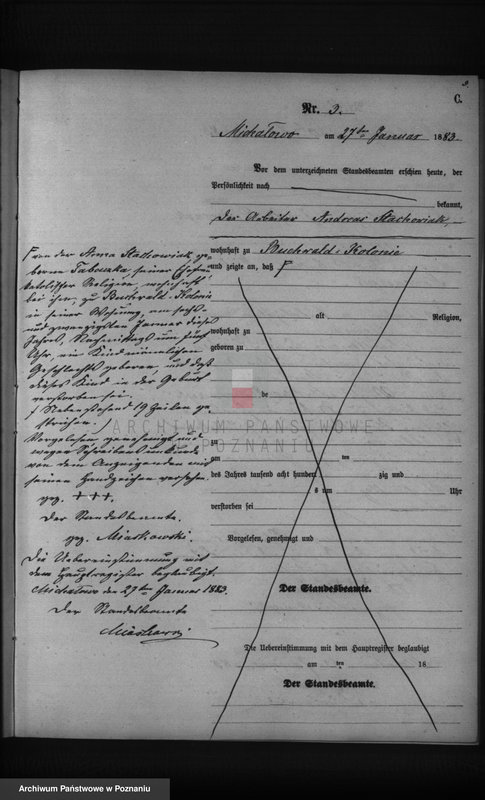 9.
C.
Nr. 3.
Michałowo am 27ten Januar 1883.
Vor dem unterzeichneten Standesbeamten erschien heute, der
Persönlichkeit nach
bekannt,
der Arbeiter Andreas Stachowiak,
wohnhaft zu Buchwald-Kolonie
und zeigte an, daß Γ
alt Religion,
wohnhaft zu
geboren zu
de
zu
am ten
des Jahres tausend acht hundert zig und
s um Uhr
verstorben sei
Vorgelesen, genehmigt und
Der Standesbeamte.
Die Uebereinstimmung mit dem Hauptregister beglaubigt
am ten 18
Der Standesbeamte.
Γ von der Anna Stachowiak, ge-
borene Tabouzka, seiner Ehefrau
katolischer Religion, wohnhaft
bei ihm, zu Buchwald-Kolonie
in seiner Wohnung, am sechs-
und zwanzigsten Januar dieses
Jahres, Nachmittags um fünf
Uhr, ein Kind männlichen
Geschlechts geboren, und daß
dieses Kind in der Geburt
verstorben sei.
/ Nebenstehend 19 Zeilen ge-
strichen. /
Vorgelesen genehmigt und
wegen Schreibensunkunde
von dem Anzeigenden mit
seinem Handzeichen versehen.
gez. + + +.
Der Standesbeamte.
gez. Miaskowski.
Die Uebereinstimmung mit
dem Hauptregister beglaubigt.
Michałowo den 27ten Januar 1883.
Der Standesbeamte
ARCHIWUM PAŃSTWOWE
POZNANIU
Archiwum Państwowe w Poznaniu